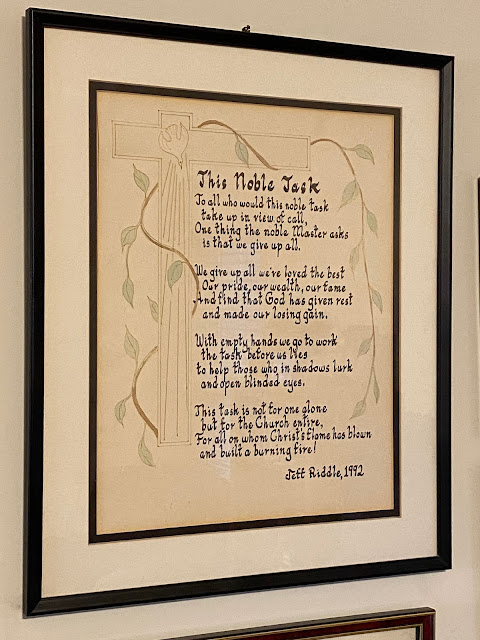 This Noble Task
To all who would this noble task
take up in view of call,
One thing the noble Master asks
is that we give up all.
We give up all we've loved the best
Our pride, our wealth, our fame
And find that God has given rest
and made our losing gain.
With empty hands we go to work
the task before us lies
to help those who in shadows lurk
and open blinded eyes.
This task is not for one alone
but for the Church entire,
For all on whom Christ's flame has blown
and built a burning fire!
Jeff Riddle, 1992